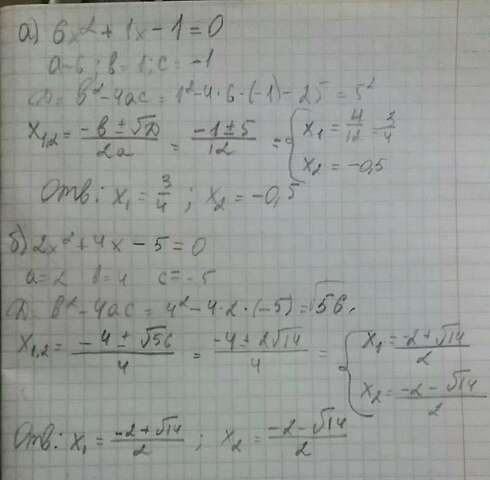 а) 6x² + 1x − 1 = 0
a=6; в = 1; c = −1
D = в² − 4ac = 1² − 4 · 6 · (−1) − 25 = 5²
x₁,₂ = (−в ± √D)/2a = (−1 ± 5)/12 = { x₁ = 4/12 = 3/4
x₂ = −0,5
Отв: x₁ = 3/4 ; x₂ = −0,5
б) 2x² + 4x − 5 = 0
a = 2 в = 4 c = −5
D = в² − 4ac = 4² − 4 · 2 · (−5) = √56.
x₁,₂ = (−4 ± √56)/4 = (−4 ± 2√14)/4 = { x₁ = (−2 + √14)/2
x₂ = (−2 − √14)/2
Отв: x₁ = (−2 + √14)/2 ; x₂ = (−2 − √14)/2